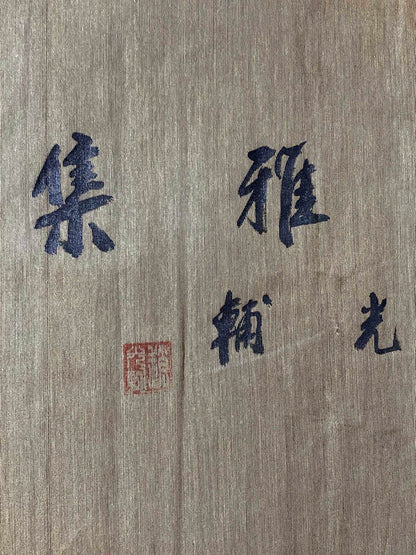 雅集
光輔